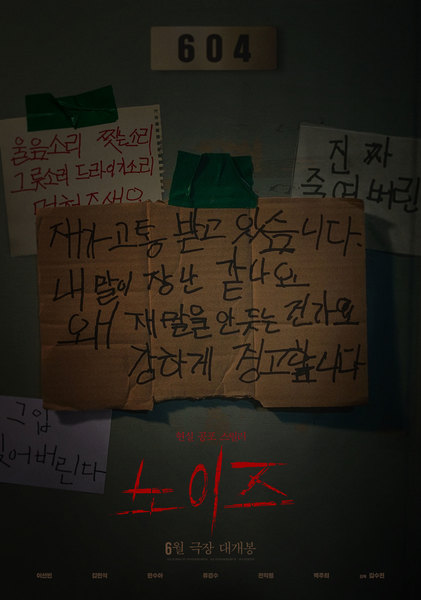 604
울음소리 짖는소리
그릇소리 드라이기소리
진짜
죽여버린
재가고통 받고 있습니다.
내 말이 장난 같나요
왜 재말을 안듣는건가요
강하게 경고합니다
그입
어버린다
현실 공포 스릴러
노이즈
6월 극장 대개봉
이선빈 김민석 한수아 류경수 전익령 백주희 감독 김수진